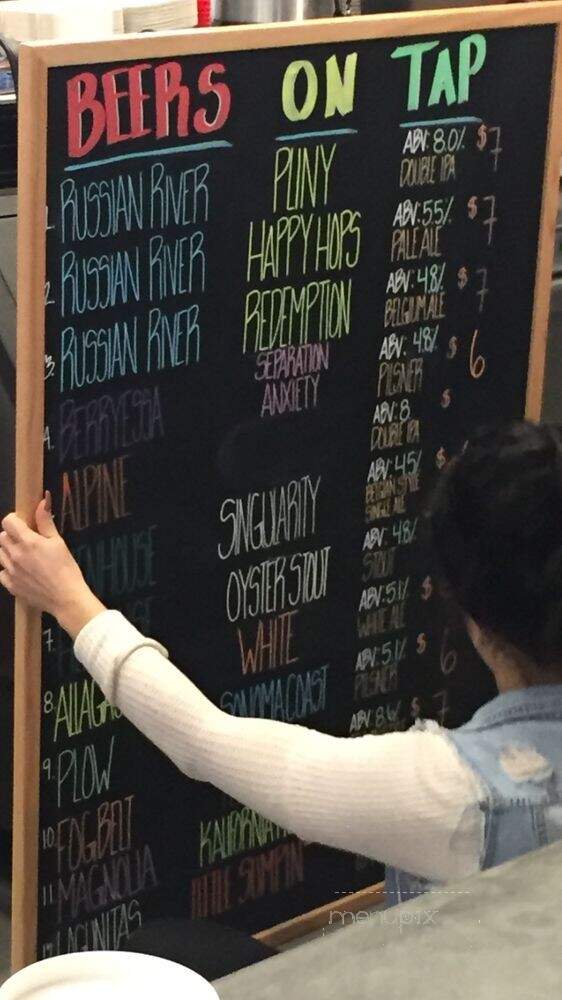 BEERS ON TAP
1. RUSSIAN RIVER PLINY ABV: 8.0% $7
DOUBLE IPA
2 RUSSIAN RIVER HAPPY HOPS ABV: 5.5% $7
PALE ALE
3. RUSSIAN RIVER REDEMPTION ABV: 4.8% $7
BELGIUM ALE
4. BERRYESSA SEPARATION ANXIETY ABV: 4.8% $6
PILSNER
ALPINE ABV: 8 $
DOUBLE IPA
ENHOUSE SINGULARITY ABV: 4.5% $
BELGIAN STYLE
SINGLE ALE
7. OYSTER STOUT ABV: 4.8%
STOUT
8. ALLAGA WHITE ABV: 5.1% $
WHITE ALE
9. PLOW SONOMA COAST ABV: 5.1% $6
PILSNER
10. FOGBELT ABV: 8. $7
11 MAGNOLIA KALIFORNIA
LAGUNITAS LITTLE SUMPIN
menupix